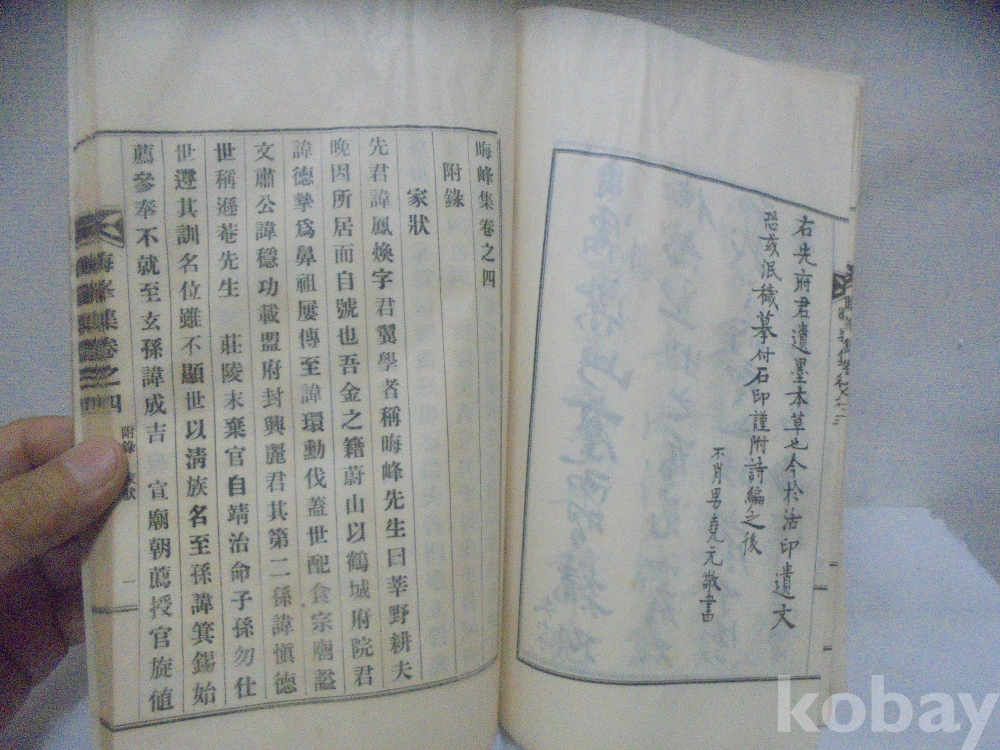 右先府君遺墨本草也今於活印遺文
恐或泯穢摹付石印謹附詩編之後
不肖男堯元敬書
晦峰集卷之四
附錄
家狀
先君諱鳳煥字君翼學者稱晦峰先生曰莘野耕夫
晚因所居而自號也吾金之籍蔚山以鶴城府院君
諱德摯爲鼻祖屢傳至諱環勳伐蓋世配食宗廟謚
文肅公諱穩功載盟府封興麗君其第二孫諱愼德
世稱遜菴先生 莊陵末棄官自靖治命子孫勿仕
世遵其訓名位雖不顯世以淸族名至孫諱箕錫始
薦參奉不就至玄孫諱成吉 宣廟朝薦授官旋値
晦峰集卷之四
附錄 家狀
一
kobay